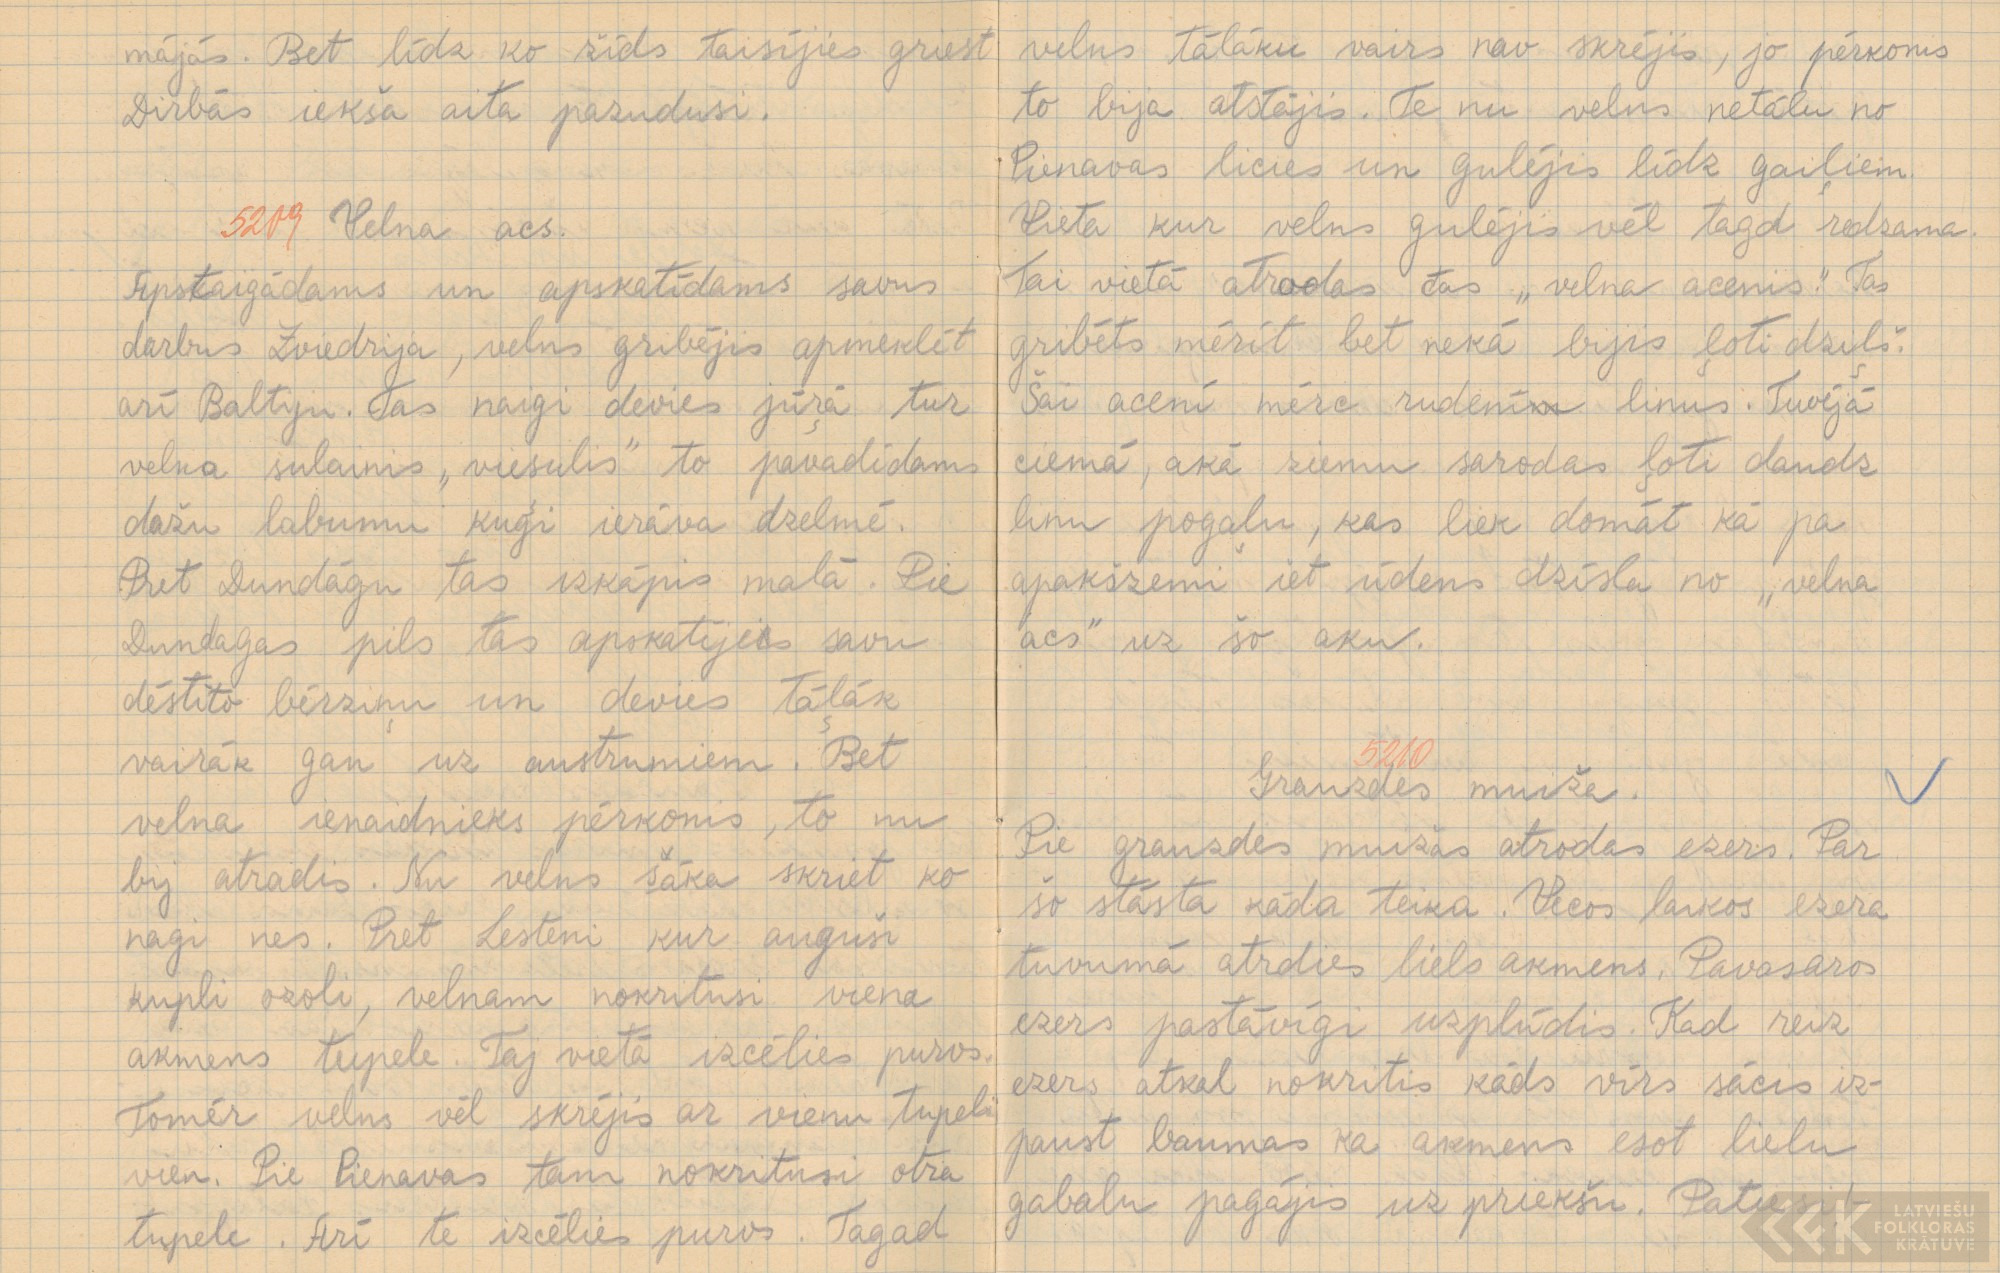 mājās. Bet līdz ko žīds taisījies griest
Dirbās iekša aita pazudusi.
5209 Velna acs.
Apstaigādams un apskatīdams savus
darbus Zviedrija, velns gribējis apmeklēt
arī Baltiju. Tas naigi devies jūŗā tur
velna sulainis „viesulis" to pavadīdams
dažu labumu kuģi ierāva dzelmē.
Pret Dundāgu tas izkāpis malā. Pie
Dundagas pils tas apskatījies savu
dēstīto bērziņu un devies tāļāk
vairāk gan uz austrumiem. Bet
velna ienaidnieks pērkonis, to nu
bij atradis. Nu velns šāka skriet ko
nagi nes. Pret Lesteni kur auguši
kupli ozoli, velnam nokritusi viena
akmens tupele. Taj vietā izcēlies purvs.
Tomēr velns vēl skrējis ar vienu tupeli
vien. Pie Pienavas tam nokritusi otra
tupele. Arī te izcēlies purvs. Tagad
velns tālāku vairs nav skrējis, jo pērkonis
to bija atstājis. Te nu velns netālu no
Pienavas licies un gulējis līdz gaiļiem.
Vieta kur velns gulējis vēl tagd redzama.
Tai vietā atrodas tas „velna acenis." Tas
gribēts mērīt bet nekā bijis ļoti dziļš.
Šai acenī mērc rudenī linus. Tuvējā
ciemā, akā ziemu sarodas ļoti daudz
linu pogaļu, kas liek domāt kā pa
apakšzemi iet ūdens dzīsla no „velna
acs" uz šo aku.
5210
Grauzdes muiža.
Pie grauzdes muižas atrodas ezers. Par
šo stāsta kāda teika. Vecos laikos ezera
tuvumā atrdies liels akmens. Pavasaros
ezers pastāvīgi uzplūdis. Kad reiz
ezers atkal nokritis kāds vīrs sācis iz-
paust baumas ka akmens esot lielu
gabalu pagājis uz priekšu. Patiesi
LATVIEŠU
FOLKLORAS
KRĀTUVE